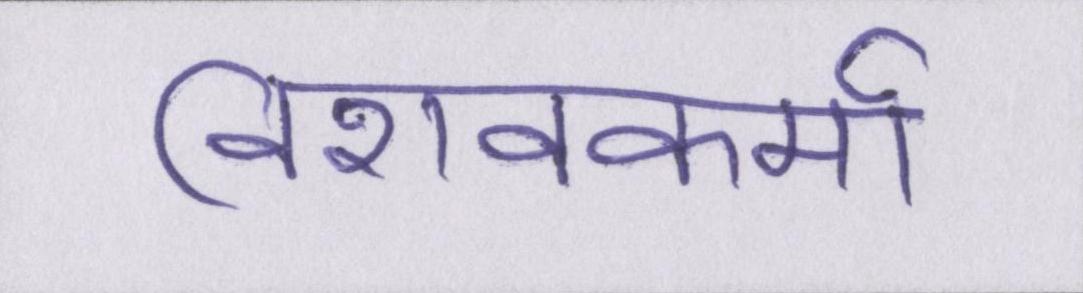 विशवकर्मा